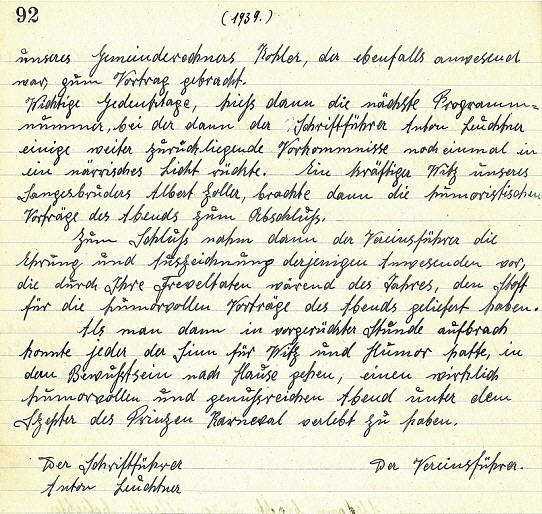 92
(1939.)
unseres Gemeinderechners Kohler, der ebenfalls anwesend
war, zum Vortrag gebracht.
Wichtige Gedenktage, hieß dann die nächste Programm=
nummer, bei der dann der Schriftführer Anton Leuchtner
einige weiter zurückliegende Vorkommnisse noch einmal in
ein närrisches Licht rückte. Ein kräftiger Witz unseres
Sangesbruders Albert Zoller, brachte dann die humoristischen
Vorträge des Abends zum Abschluß.
Zum Schluß nahm dann der Vereinsführer die
Ehrung und Auszeichnung derjenigen Anwesenden vor,
die durch Ihre Freveltaten wärend des Jahres, den Stoff
für die humorvollen Vorträge des Abends geliefert haben.
Als man dann in vorgerückter Stunde aufbrach
konnte jeder der Sinn für Witz und Humor hatte, in
dem Bewußtsein nach Hause gehen, einen wirklich
humorvollen und genußreichen Abend unter dem
Szepter des Prinzen Karneval verlebt zu haben.
Der Schriftführer Der Vereinsführer.
Anton Leuchtner